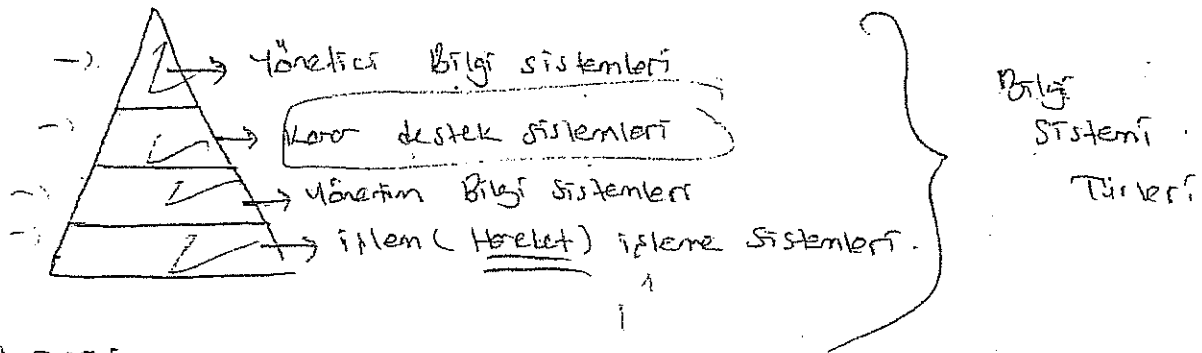 Yönetici Bilgi sistemleri
Karar destek sistemleri
Yönetim Bilgi Sistemleri
işlem (Hareket) işleme Sistemleri.
Bilgi
Sistemi
Türleri